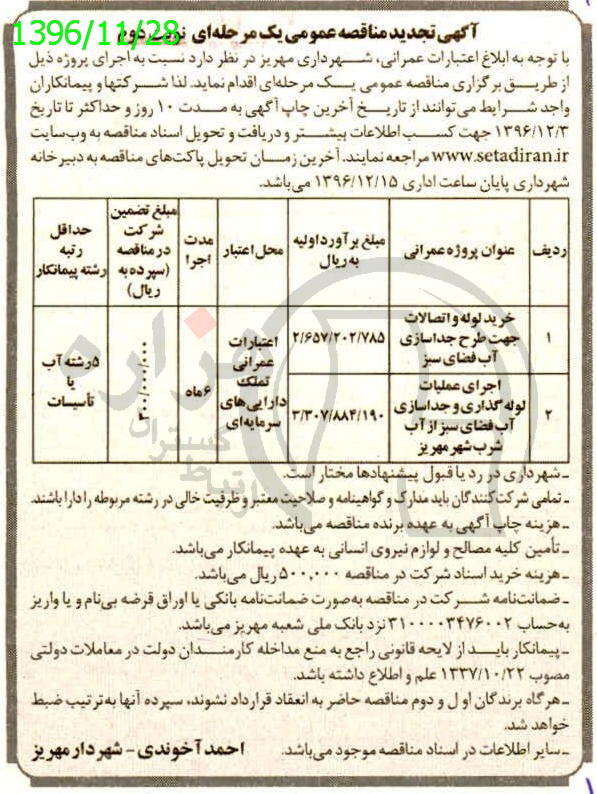 1396/11/28
آگهی تجدید مناقصه عمومی یک مرحله‌ای نوبت دوم
با توجه به ابلاغ اعتبارات عمرانی، شهرداری مهریز در نظر دارد نسبت به اجرای پروژه ذیل
از طریق برگزاری مناقصه عمومی یک مرحله‌ای اقدام نماید. لذا شرکتها و پیمانکاران
واجد شرایط می‌توانند از تاریخ آخرین چاپ آگهی به مدت ۱۰ روز و حداکثر تا تاریخ
۱۳۹۶/۱۲/۳ جهت کسب اطلاعات بیشتر و دریافت و تحویل اسناد مناقصه به وب‌سایت
www.setadiran.ir مراجعه نمایند. آخرین زمان تحویل پاکت‌های مناقصه به دبیرخانه
شهرداری پایان ساعت اداری ۱۳۹۶/۱۲/۱۵ می‌باشد.
ردیف
عنوان پروژه عمرانی
مبلغ برآورد اولیه
به ریال
محل اعتبار
مدت
اجرا
مبلغ تضمین
شرکت
در مناقصه
(سپرده به
ریال)
حداقل
رتبه
رشته پیمانکار
۱
خرید لوله و اتصالات
جهت طرح جداسازی
آب فضای سبز
۲/۶۵۷/۲۰۲/۷۸۵
۲
اجرای عملیات
لوله گذاری و جداسازی
آب فضای سبز از آب
شرب شهر مهریز
۳/۳۰۷/۸۸۴/۱۹۰
اعتبارات
عمرانی
تملک
دارایی‌های
سرمایه‌ای
۶ماه
۳۰۰/۰۰۰/۰۰۰
۵رشته آب
یا
تأسیسات
هزاره
گستران
ارتباط
ـ شهرداری در رد یا قبول پیشنهادها مختار است.
ـ تمامی شرکت‌کنندگان باید مدارک و گواهینامه و صلاحیت معتبر و ظرفیت خالی در رشته مربوطه را دارا باشند.
ـ هزینه چاپ آگهی به عهده برنده مناقصه می‌باشد.
ـ تأمین کلیه مصالح و لوازم نیروی انسانی به عهده پیمانکار می‌باشد.
ـ هزینه خرید اسناد شرکت در مناقصه ۵۰۰,۰۰۰ ریال می‌باشد.
ـ ضمانت‌نامه شرکت در مناقصه به‌صورت ضمانت‌نامه بانکی یا اوراق قرضه بی‌نام و یا واریز
به‌حساب ۳۱۰۰۰۰۳۴۷۶۰۰۲ نزد بانک ملی شعبه مهریز می‌باشد.
ـ پیمانکار باید از لایحه قانونی راجع به منع مداخله کارمندان دولت در معاملات دولتی
مصوب ۱۳۳۷/۱۰/۲۲ علم و اطلاع داشته باشد.
ـ هرگاه برندگان اول و دوم مناقصه حاضر به انعقاد قرارداد نشوند، سپرده آنها به‌ترتیب ضبط
خواهد شد.
ـ سایر اطلاعات در اسناد مناقصه موجود می‌باشد.
احمد آخوندی - شهردار مهریز